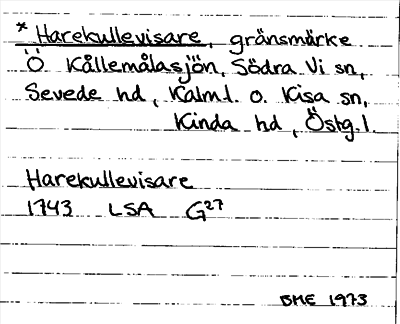 * Harekullevisare, gränsmärke
Ö Kållemålasjön, Södra Vi sn,
Sevede hd, Kalml. o. Kisa sn,
Kinda hd, Östg.l.
Harekullevisare
1743 LSA G27
BME 1973